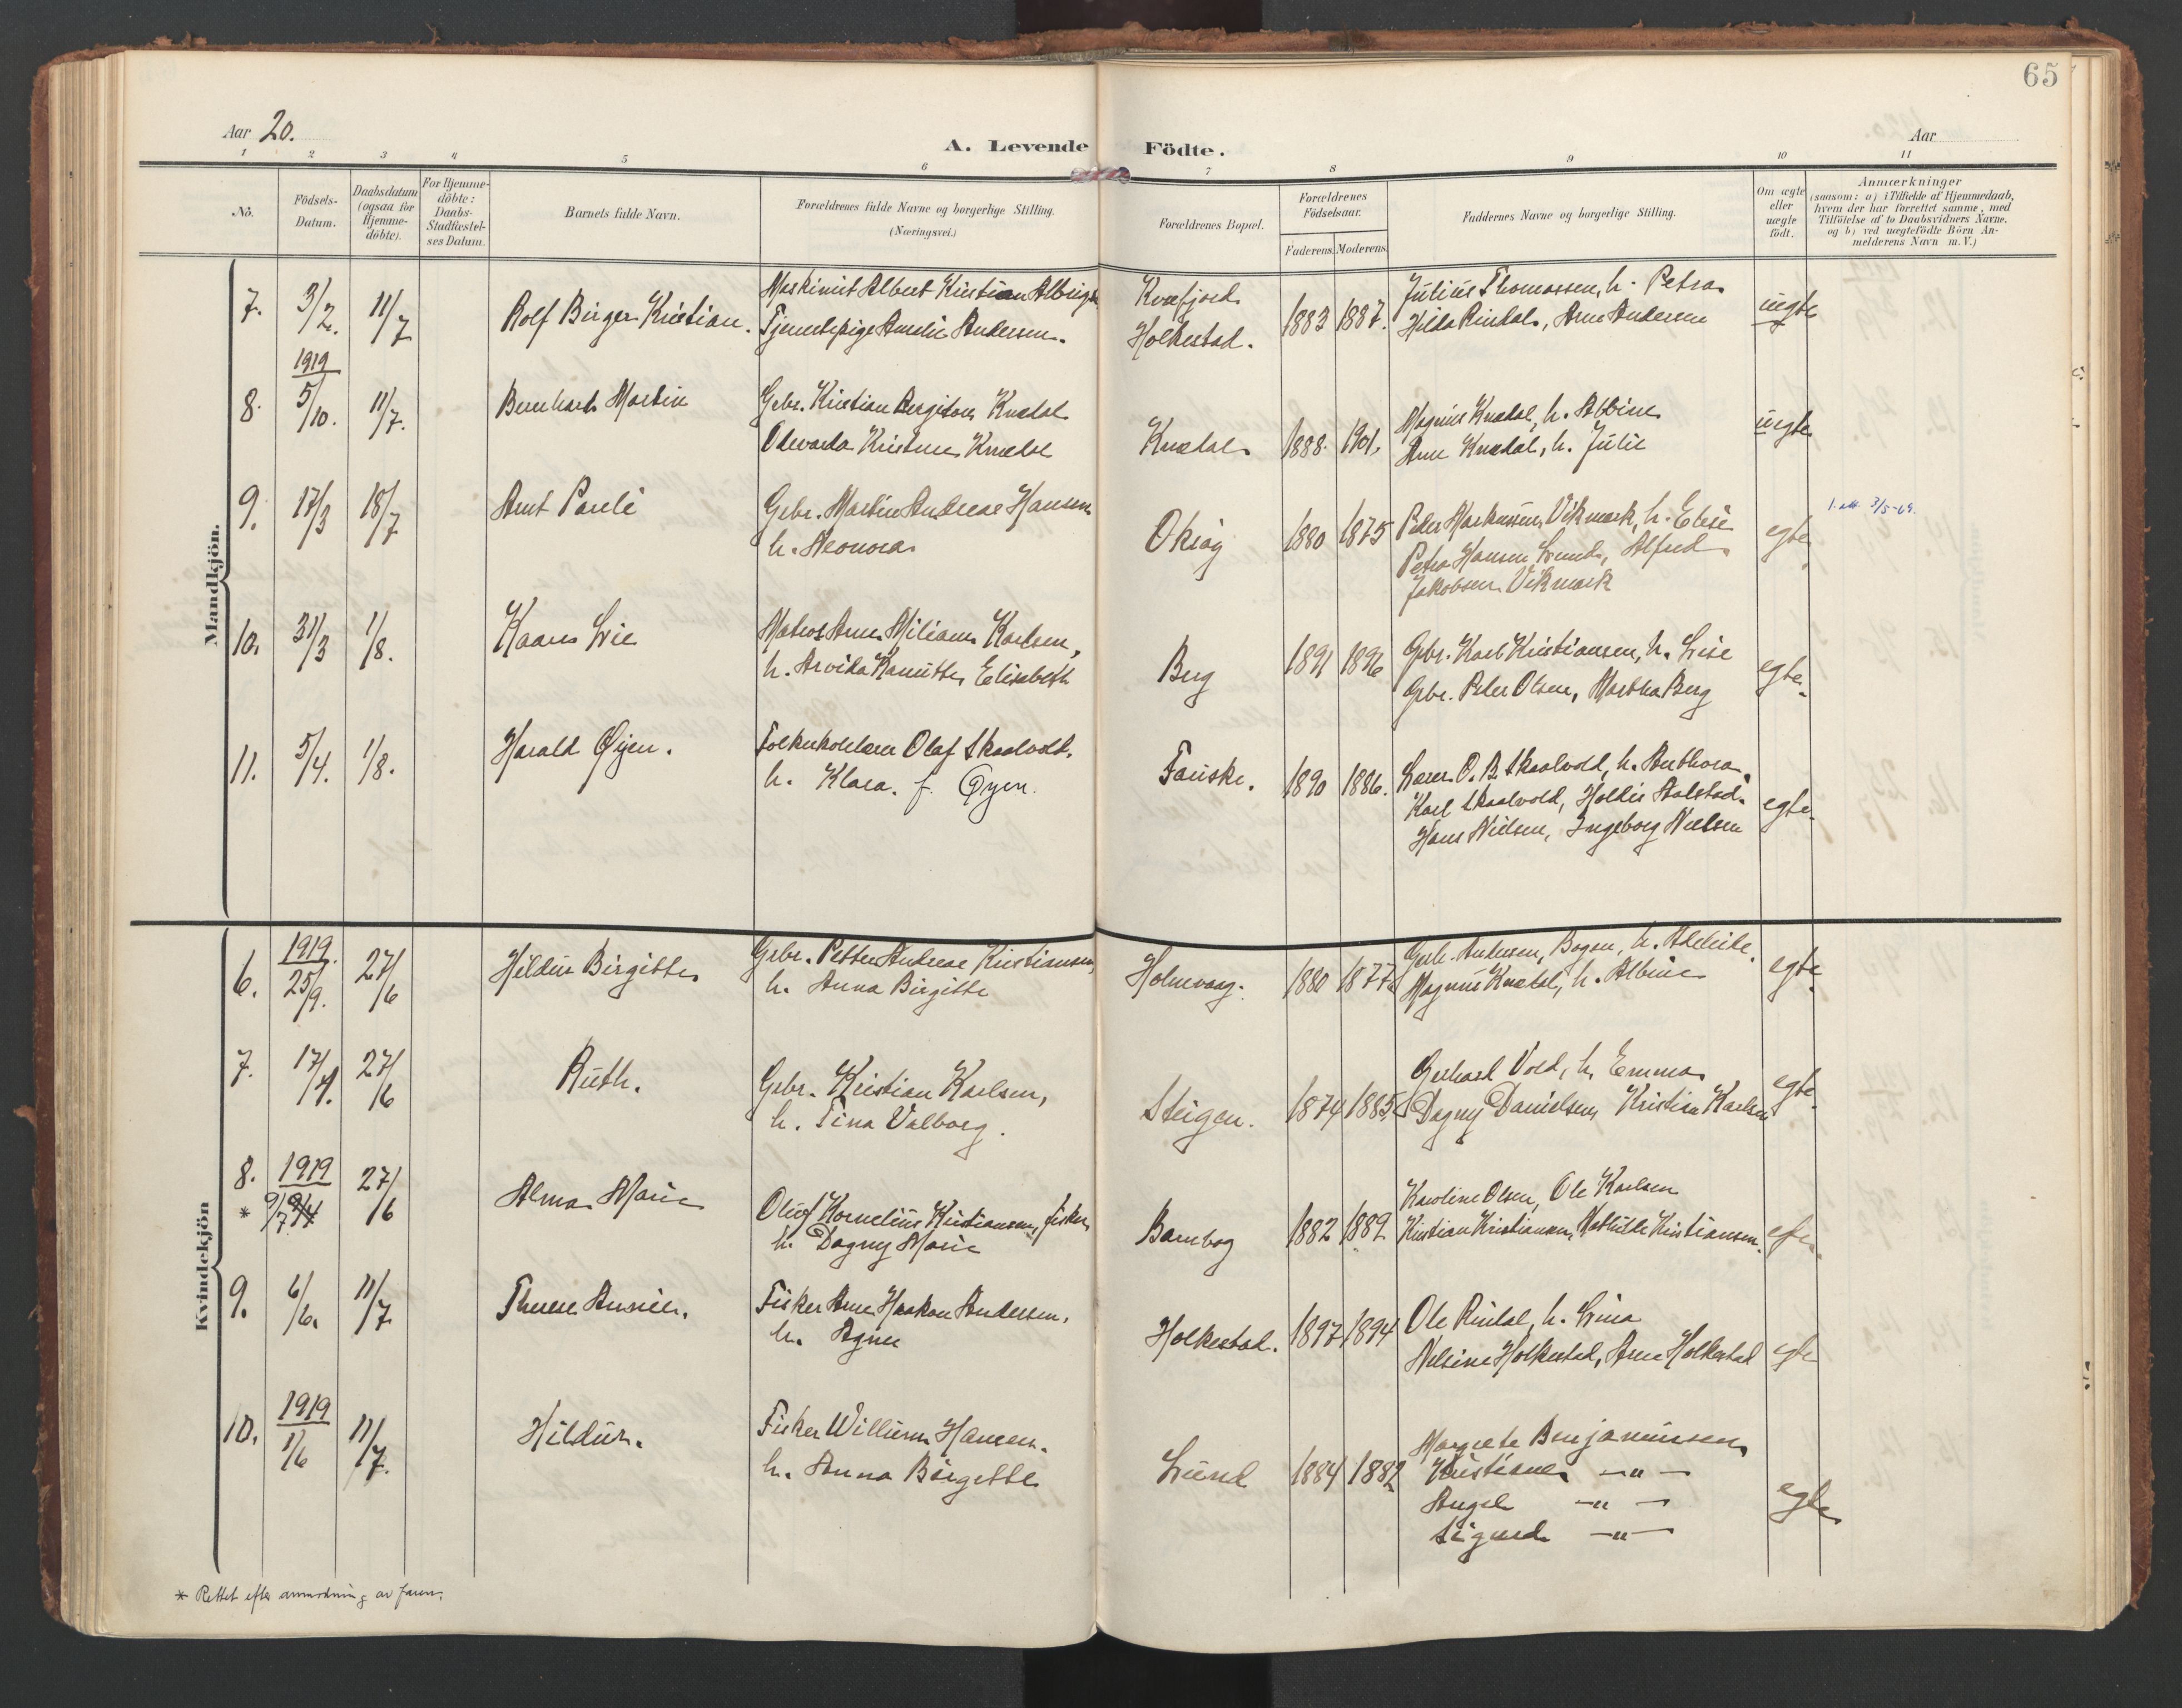 65
Aar 20.
A. Levende Födte.
Aar
1 2 3 4 5 6 7 8 9 10 11
No.
Födsels-Datum.
Daabsdatum (ogsaa for Hjemme-döbte).
For Hjemme-döbte: Daabs-Stadfæstel-ses Datum.
Barnets fulde Navn.
Forældrenes fulde Navne og borgerlige Stilling.
(Næringsvei.)
Forældrenes Bopæl.
Forældrenes Födselsaar.
Faderens. Moderens.
Faddernes Navne og borgerlige Stilling.
Om ægte eller uægte födt.
Anmærkninger
(saasom: a) i Tilfælde af Hjemmedaab,
hvem der har forrettet samme, med
Tilföielse af to Daabsvidners Navne,
og b) ved uægtefödte Börn An-
melderens Navn m. V.)
Mandkjön.
7. 3/2. 11/7 Rolf Birger Kristian.
Maskinist Albert Kristian
Tjenestepige Amelie Andersen.
Kvæfjord
Holkestad.
1883 1887.
Julius Thomassen, h. Petra
Hilda Rindal, Arne Andersen
uegte
8. 1919 5/10. 11/7. Bernhard Martin
Gbr. Kristian Bergiton Knædal
Odvarda Kristine Knædal
Knædal 1888. 1901.
Magnus Knædal, h. Albine
Arne Knædal, h. Julie
uegte
9. 17/3 18/7 Arnt Pauli
Gbr. Martin Andreas Hansen
h. Leonora
1880 1875
Peder Markussen Vikmark, h. Elise
Petra Hansen Lund, Alfred
Jakobsen Vikmark
egte
1. att. 3/5-69.
10. 31/3 1/8. Kaare Lie
Matros Arne Miliam Karlsen,
h. Arvida Kamitta Elisabeth
Berg 1891 1896
Gbr. Karl Kristiansen, h. Lise
Gbr. Peder Olsen, Martha Berg
egte.
11. 5/4. 1/8. Harald Øyen.
Folkeskolelærer Olaf Skaalvold.
h. Klara. f. Øyen.
Fauske. 1890 1886.
Lærer O. B. Skaalvold, h. Anthora.
Karl Skaalvold, Holdis Aalstad.
Hans Nielsen, Ingeborg Nielsen
egte.
Kvindekjön
6. 1919. 25/9. 27/6 Hildur Birgitte
Gbr. Petter Andreas Kristiansen,
h. Anna Birgitte
Holmvaag. 1880 1877
Gerh. Andersen, Bogen, h. Adeleide.
Magnus Knædal, h. Albine
egte
7. 17/4. 27/6 Ruth.
Gbr. Kristian Karlsen,
h. Tina Valborg.
Steigen. 1874 1885
Gerhard Vold, h. Emma
Dagny Danielsen, Kristine Karlsen
egte.
8. 1919 * 9/7 27/6 Alma Marie
Oluf Kornelius Kristiansen, fisker,
h. Dagny Marie
Barnbog 1882 1889
Karoline Olsen, Ole Karlsen
Kristian Kristiansen, Mathilde Kristiansen.
9. 6/6. 11/7 Therese
Fisker Arne Haakon Andersen,
h. Agnes
Holkestad. 1897 1894
Ole Rindal, h. Lina
Nelsine Holkestad, Arne Holkestad
egte
10. 1919 1/6 11/7. Hildur.
Fisker William Hansen.
h. Anna Birgitte
Lund 1884 1882
Margrete Benjaminsen
Kristiane —"—
Angel —"—
Sigurd —"—
egte
* Rettet efter anmodning av faren.